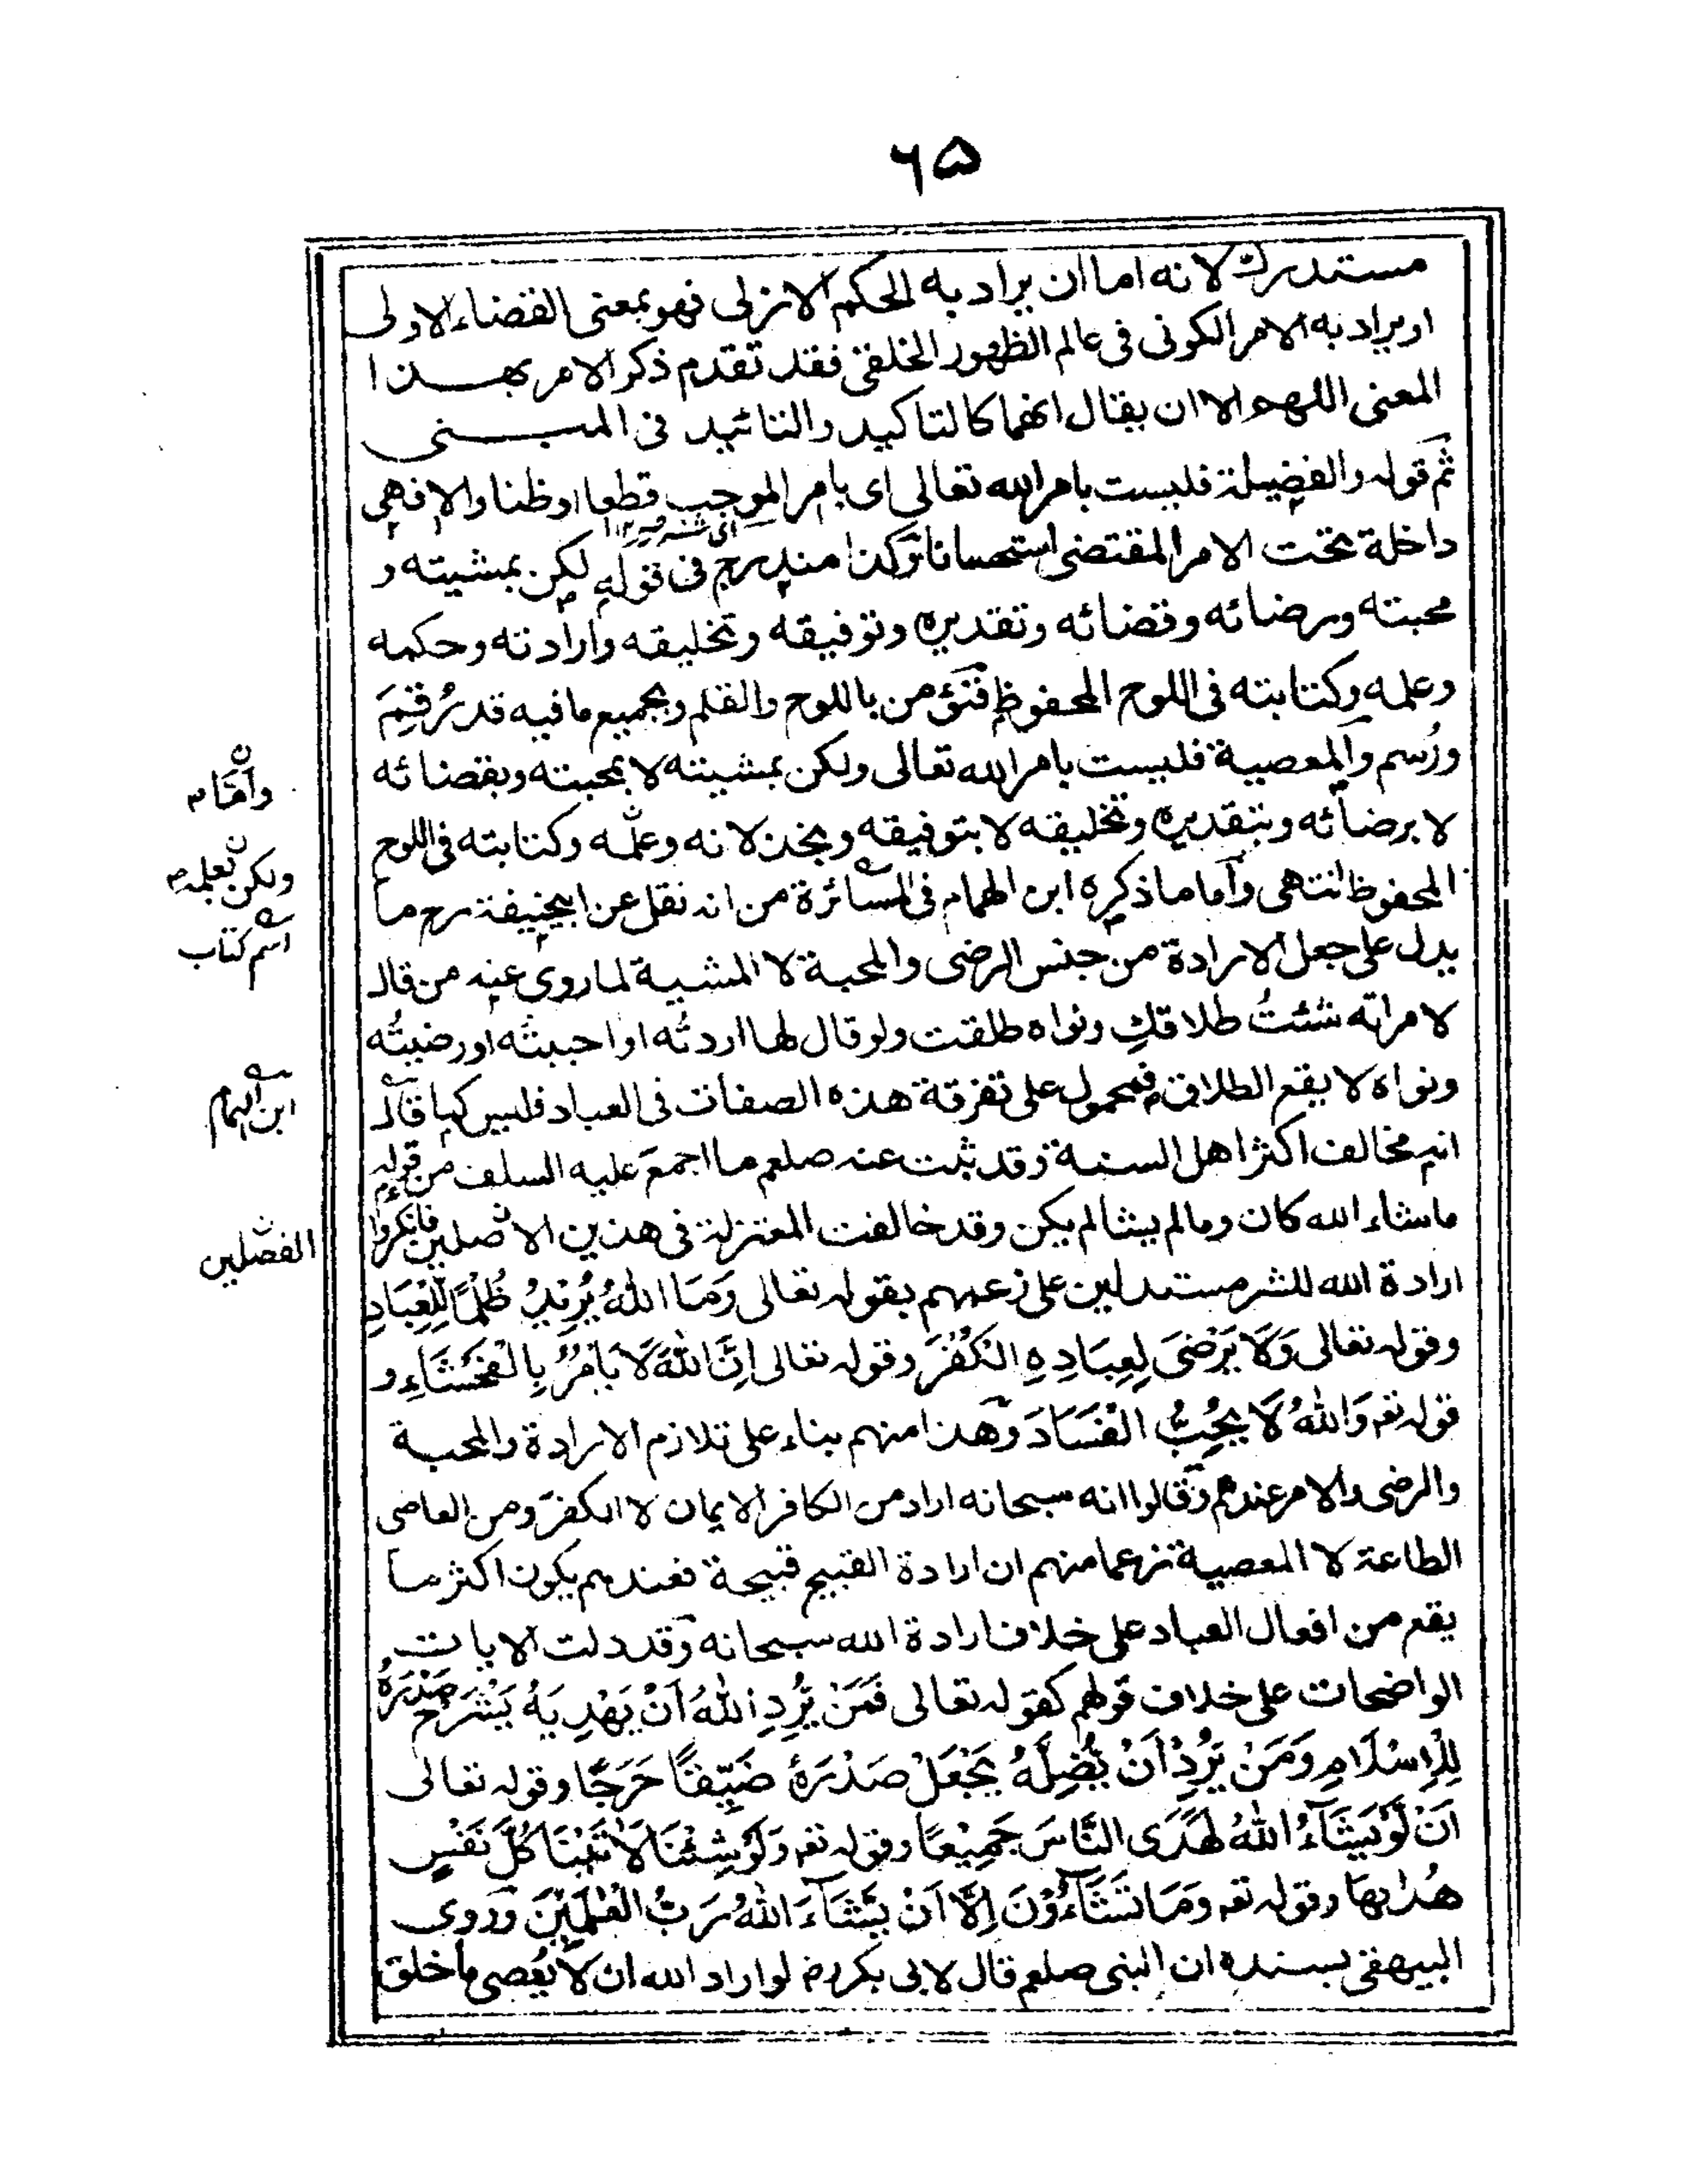 ۶۵
مستدرك لانه اما ان يراد به الحكم الازلى فهو بمعنى القضاء الاولى
او يراد به الامر الكونى فى عالم الظهور الخلقى فقد تقدم ذكر الامر بهذا
المعنى اللهم الا ان يقال انهما كالتاكيد والتائيد فى المبنى
ثم قوله والفضيلة فليست بامر الله تعالى اى بامر الموجب قطعا او ظنا والا فهى
داخلة تحت الامر المقتضى استحسانا وكذا مندرج فى قوله لكن بمشيته و
محبته ورضائه وقضائه وتقديره وتوفيقه وتخليقه وارادته وحكمه
وعلمه وكتابته فى اللوح المحفوظ فنؤمن باللوح والقلم وبجميع ما فيه قد رُقِمَ
ورُسم والمعصية فليست بامر الله تعالى ولكن بمشيته لا بمحبته وبقضائه
لا برضائه وبتقديره وتخليقه لا بتوفيقه وبخذلانه وعلمه وكتابته فى اللوح
المحفوظ انتهى واما ما ذكره ابن الهمام فى المسائرة من انه نقل عن ابيحنيفة رح ما
يدل على جعل الارادة من جنس الرضى والمحبة لا المشية لما روى عنه من قال
لامراته شئتُ طلاقكِ ونواه طلقت ولو قال لها اردتُه او احببتُه او رضيتُه
ونواه لا يقع الطلاق فمحمول على تفرقة هذه الصفات فى العباد فليس كما قال
انه مخالف اكثر اهل السنة وقد ثبت عنه صلعم ما اجمعَ عليه السلف من قوله
ماشاء الله كان ومالم يشا لم يكن وقد خالفت المعتزلة فى هذين الاصلين فانكروا
ارادة الله للشر مستدلين على زعمهم بقوله تعالى وَمَا اللهُ يُرِيْدُ ظُلْمًا لِّلْعِبَادِ
وقوله تعالى وَلَا يَرْضَى لِعِبَادِهِ الْكُفْرَ وقوله تعالى اِنَّ اللهَ لَا يَأْمُرُ بِالْفَحْشَاءِ و
قوله تعم وَاللهُ لَا يُحِبُّ الْفَسَادَ وهذا منهم بناء على تلازم الارادة والمحبة
والرضى والامر عندهم وقالوا انه سبحانه اراد من الكافر الايمان لا الكفر ومن العاصى
الطاعة لا المعصية زعما منهم ان ارادة القبيح قبيحة فعندهم يكون اكثر ما
يقع من افعال العباد على خلاف ارادة الله سبحانه وقد دلت الايات
الواضحات على خلاف قولهم كقوله تعالى فَمَنْ يُّرِدِ اللهُ اَنْ يَهْدِيَهُ يَشْرَحْ صَدْرَهُ
لِلْاِسْلَامِ وَمَنْ يُرِدْ اَنْ يُّضِلَّهُ يَجْعَلْ صَدْرَهُ ضَيِّقًا حَرَجًا وقوله تعالى
اَنْ لَّوْ يَشَآءُ اللهُ لَهَدَى النَّاسَ جَمِيْعًا وقوله تعم وَلَوْ شِئْنَا لَاٰتَيْنَا كُلَّ نَفْسٍ
هُدٰىهَا وقوله تعم وَمَا تَشَآءُوْنَ اِلَّا اَنْ يَّشَآءَ اللهُ رَبُّ الْعٰلَمِيْنَ وروى
البيهقى بسنده ان النبى صلعم قال لابى بكر رض لو اراد الله ان لا يُعصى ما خلق
ولكن بعلمه
اسم كتاب
ابن الهمام
الفصلين